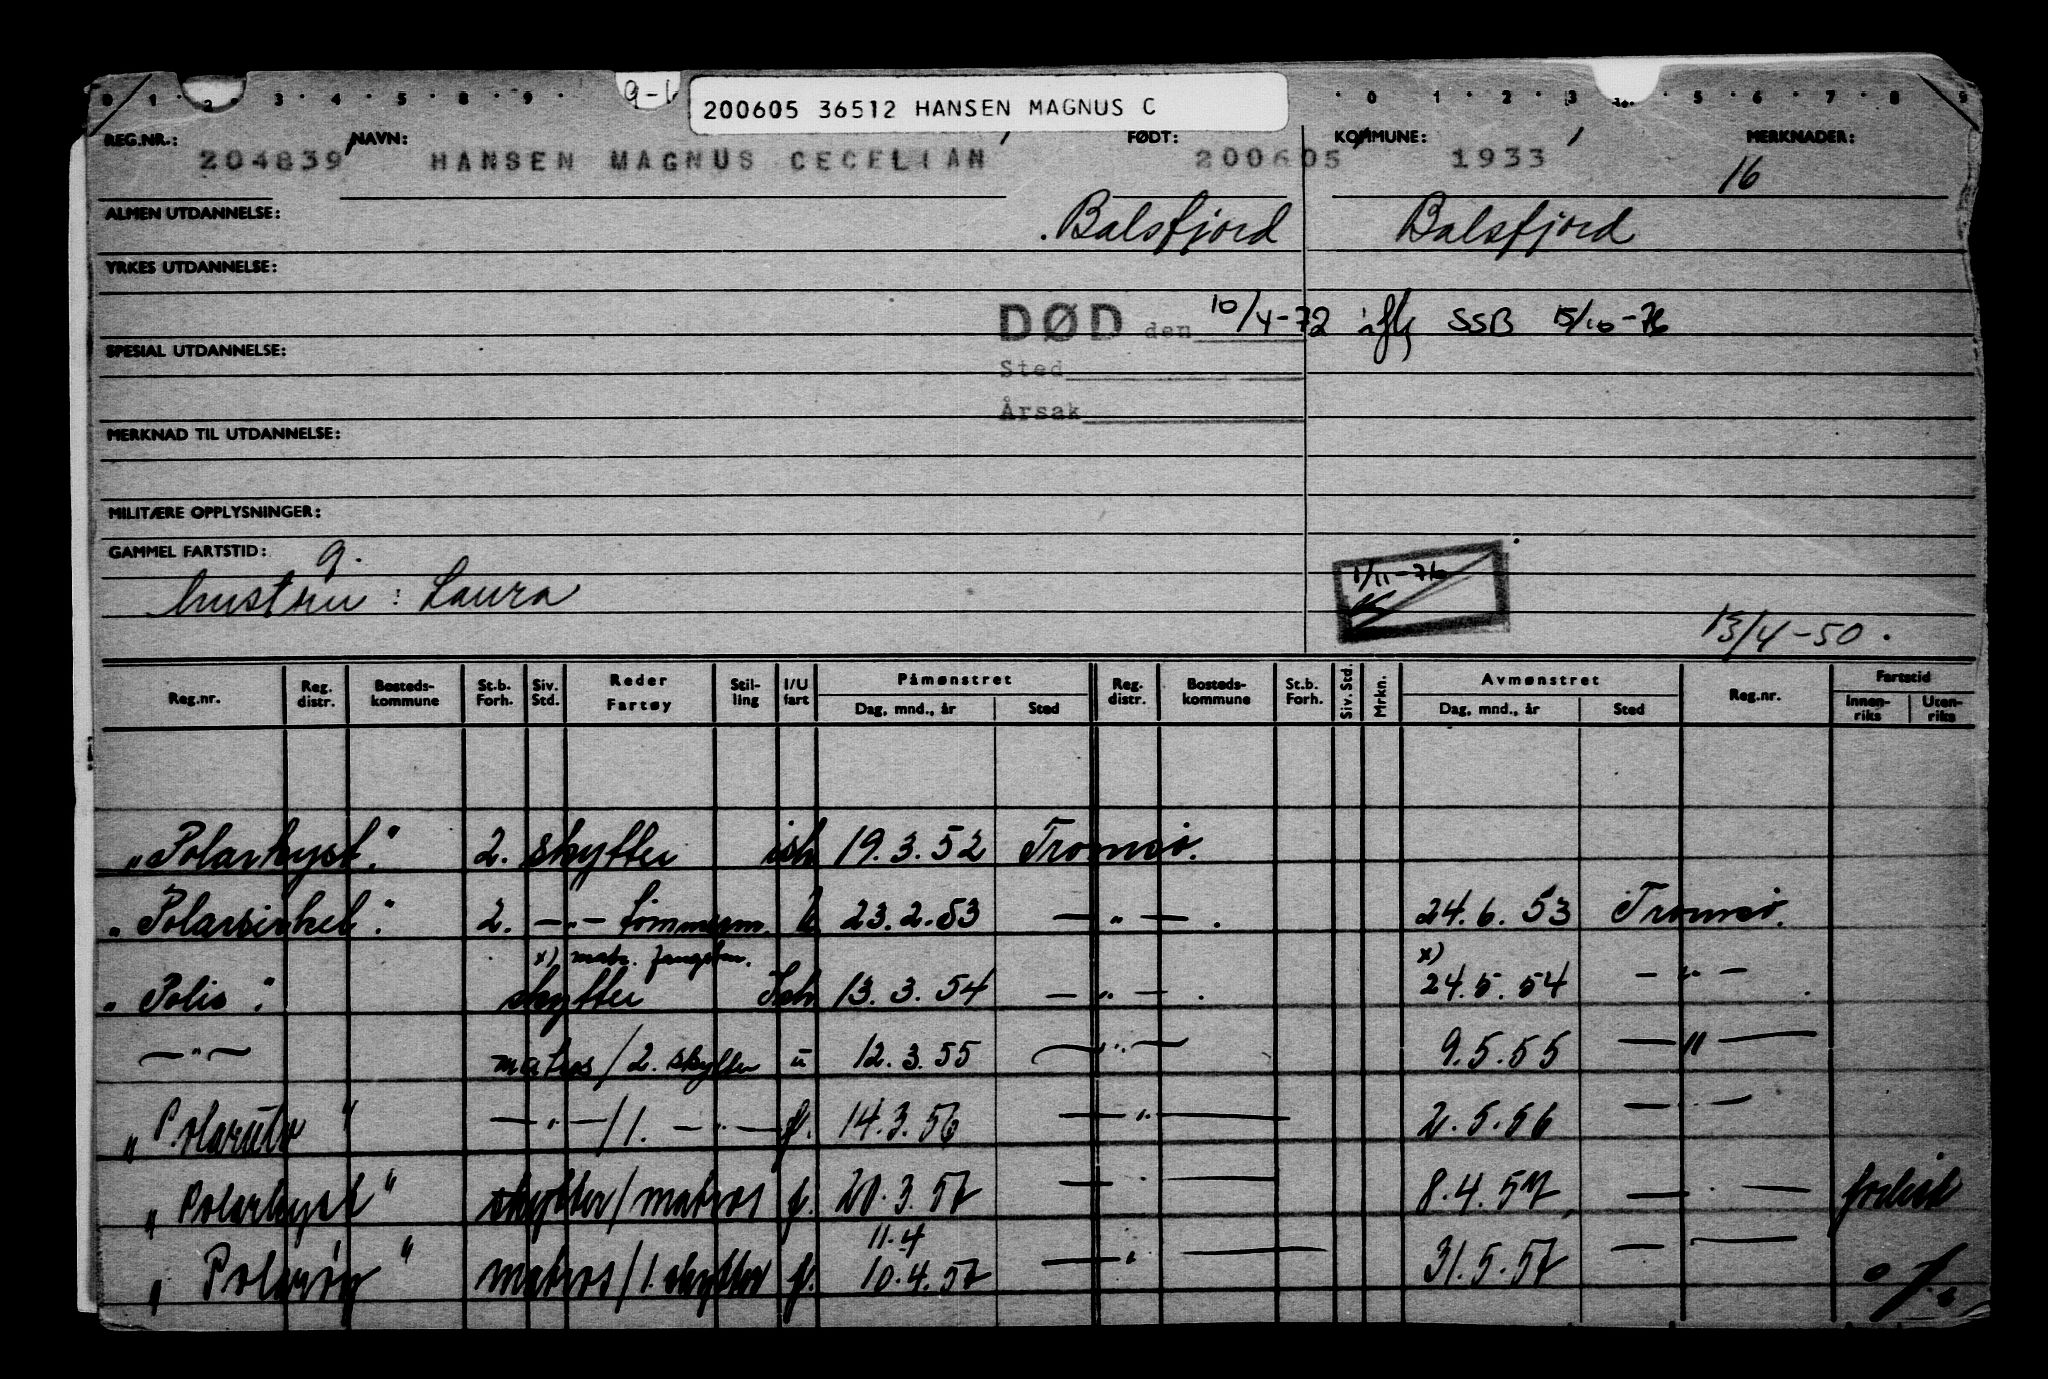 0 1 · 2 · 3 · 4 · 5 · 8 · 9 ·
200605 36512 HANSEN MAGNUS C
· 0 1 · 2 · 3 5 · 6 · 7 · 8 9
REG.NR.: NAVN: FØDT: KOMMUNE: MERKNADER:
204839 HANSEN MAGNUS CECELIAN 200605 1933
16
ALMEN UTDANNELSE: Balsfjord Balsfjord
YRKES UTDANNELSE:
DØD den 10/4-72 iflg SSB 15/10-76
SPESIAL UTDANNELSE: Sted
Årsak
MERKNAD TIL UTDANNELSE:
MILITÆRE OPPLYSNINGER:
GAMMEL FARTSTID: g.
1/11-76
hustru: Laura
13/4-50.
Reg.nr. Reg. distr. Bosteds-kommune St.b. Forh. Siv. Std. Reder Fartøy Stil-ling I/U fart Påmønstret Dag, mnd., år Sted Reg. distr. Bosteds-kommune St.b. Forh. Siv. Std. Mrkn. Avmønstret Dag, mnd., år Sted Reg.nr. Fartstid Innen-riks Uten-riks
"Polarhyst." 2. skytter ish 19.3.52 Tromsø.
"Polarsirkel." 2. —"— tømmerm. U 23.2.53 —"—. 24.6.53 Tromsø.
x) matr. fangstm. x)
"Polis." skytter Ish 13.3.54 —"—. 24.5.54 —"—
—"— matros/2. skytter u 12.3.55 —"— 9.5.55 —"—
" " —"—/1. —"— f. 14.3.56 —"— 2.5.56 —"—
"Polarhyst" skytter/matros f. 20.3.57 —"— 8.4.57, —"— forlist
11.4
"Polarøy" matros/1. skytter f. 10.4.57 —"— 31.5.57 —"—